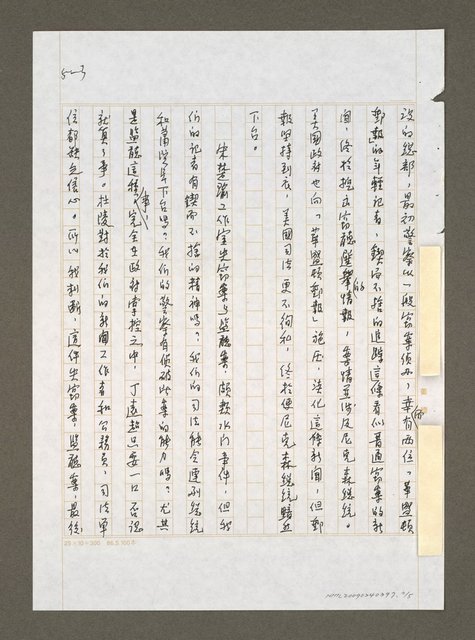 523
政的總部，最初警察以一般竊案偵办，幸有兩位「華盛頓
郵報」的年輕記者，鍥而不捨的追蹤這條看似普通竊案的新
聞，終於挖出竊聽選舉的情報，案情並涉及尼克森總統。
美國政府也向「華盛頓郵報」施压，淡化這條新聞，但郵
報堅持到底，美國司法更不徇私，終於使尼克森總統黯然
下台。
宋楚瑜工作室失竊案与監聽案，頗類水门事件，但我
們的記者有鍥而不捨的精神嗎？我們的司法能令連到總統
和蕭 下台嗎？我們的警察有偵破此案的能力嗎？尤其
是監聽這種事，完全在政府掌控之中，丁遠超只要一口否認
就算了事。杜陵對於我們的新聞工作者和公務員，司法單
位都缺乏信心。所以我判斷，這件失竊案，監聽案，最後
25×10=300
NMTL20090240297 2/5